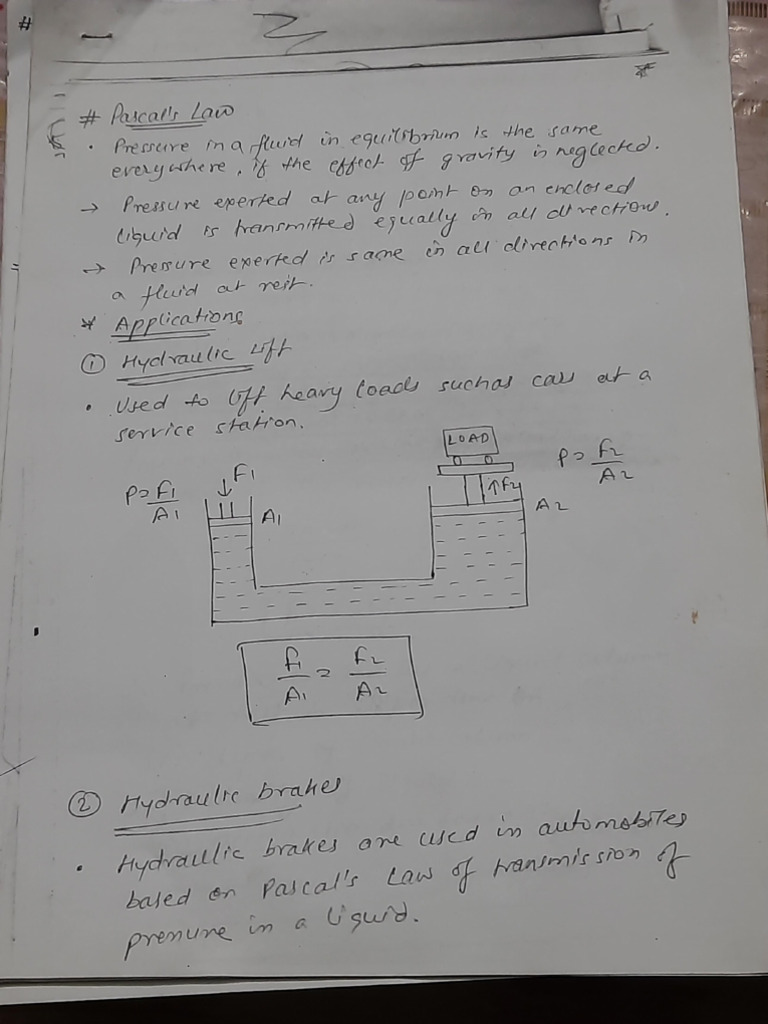 #
# Pascal's Law
• Pressure in a fluid in equilibrium is the same
everywhere, if the effect of gravity is neglected.
→ Pressure experted at any point on an enclosed
liquid is transmitted equally in all directions.
→ Pressure exerted is same in all directions in
a fluid at rest.
* Applications
① Hydraulic Lift
• Used to lift heavy loads such as cars at a
service station.
LOAD
P = F1/A1
F1
A1
F2
A2
P = F2/A2
F1/A1 = F2/A2
② Hydraulic brakes
• Hydraulic brakes are used in automobiles
based on Pascal's Law of transmission of
pressure in a liquid.